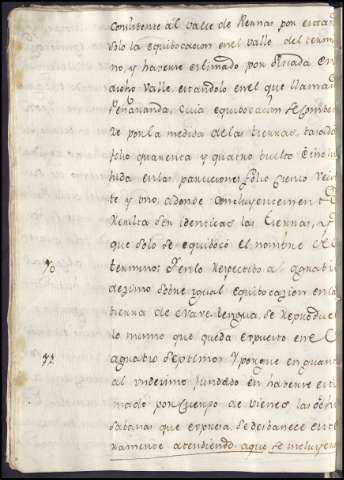 consistente al valle de Rennas por estar
solo la equibocacion en el valle del termi
no, y haverse estimado por situada en
dicho Valle, estandolo en el que llaman
Peñaranda, cuia equibocacion se comben
ze por la medida de las tierras, tasada
folio quarenta y quatro buelto e inclu
hida en las particiones folio ciento vein
te y uno, adonde
Resulta ser identicas las tierras, y
que solo se equibocó el nombre del
termino: Y en lo respectibo al agrabio
dezimo sobre igual equibocazion en la
tierra de Navarlengua, se reproduce
lo mismo que queda expuesto en el
70
agrabio septimo: Y porque en quanto
71
al undezimo fundado en haverse esti
mado por cuerpo de vienes las
que expresa, se desbanece ente
ramente atendiendo a que se incluyeron